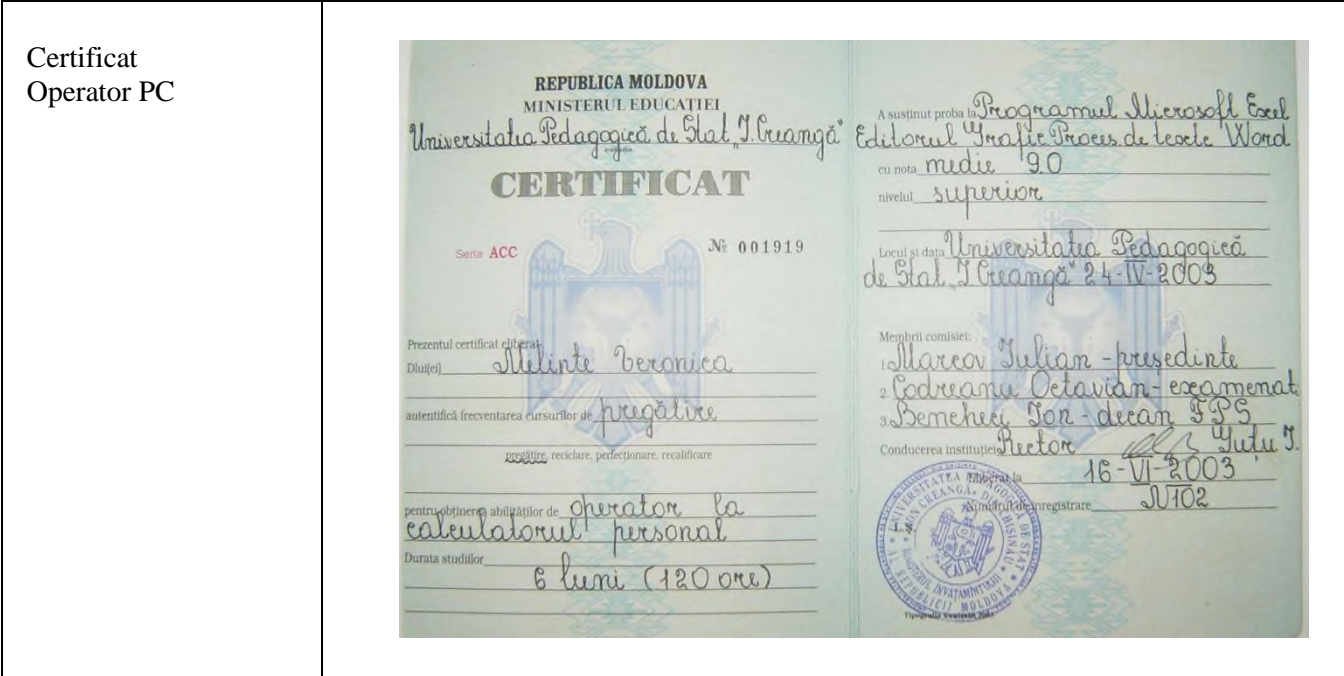 Certificat
Operator PC
REPUBLICA MOLDOVA
MINISTERUL EDUCAȚIEI
Universitatea Pedagogică de Stat „I. Creangă"
CERTIFICAT
Seria ACC № 001919
Prezentul certificat eliberat
Dlui(ei) Melinte Veronica
autentifică frecventarea cursurilor de pregătire
pregătire, reciclare, perfecționare, recalificare
pentru obținerea abilităților de operator la
calculatorul personal
Durata studiilor
6 luni (120 ore)
A susținut proba la Programul Microsoft Excel
Editorul Grafic Proces. de texte Word
cu nota medie 9.0
nivelul superior
Locul și data Universitatea Pedagogică
de Stat „I. Creangă" 24-IV-2003
Membrii comisiei:
1. Marcov Iulian - președinte
2. Codreanu Octavian - examenat
3. Ion - decan FPS
Conducerea instituției Rector Guțu I.
Eliberat la 16-VI-2003
Numărul de înregistrare N102